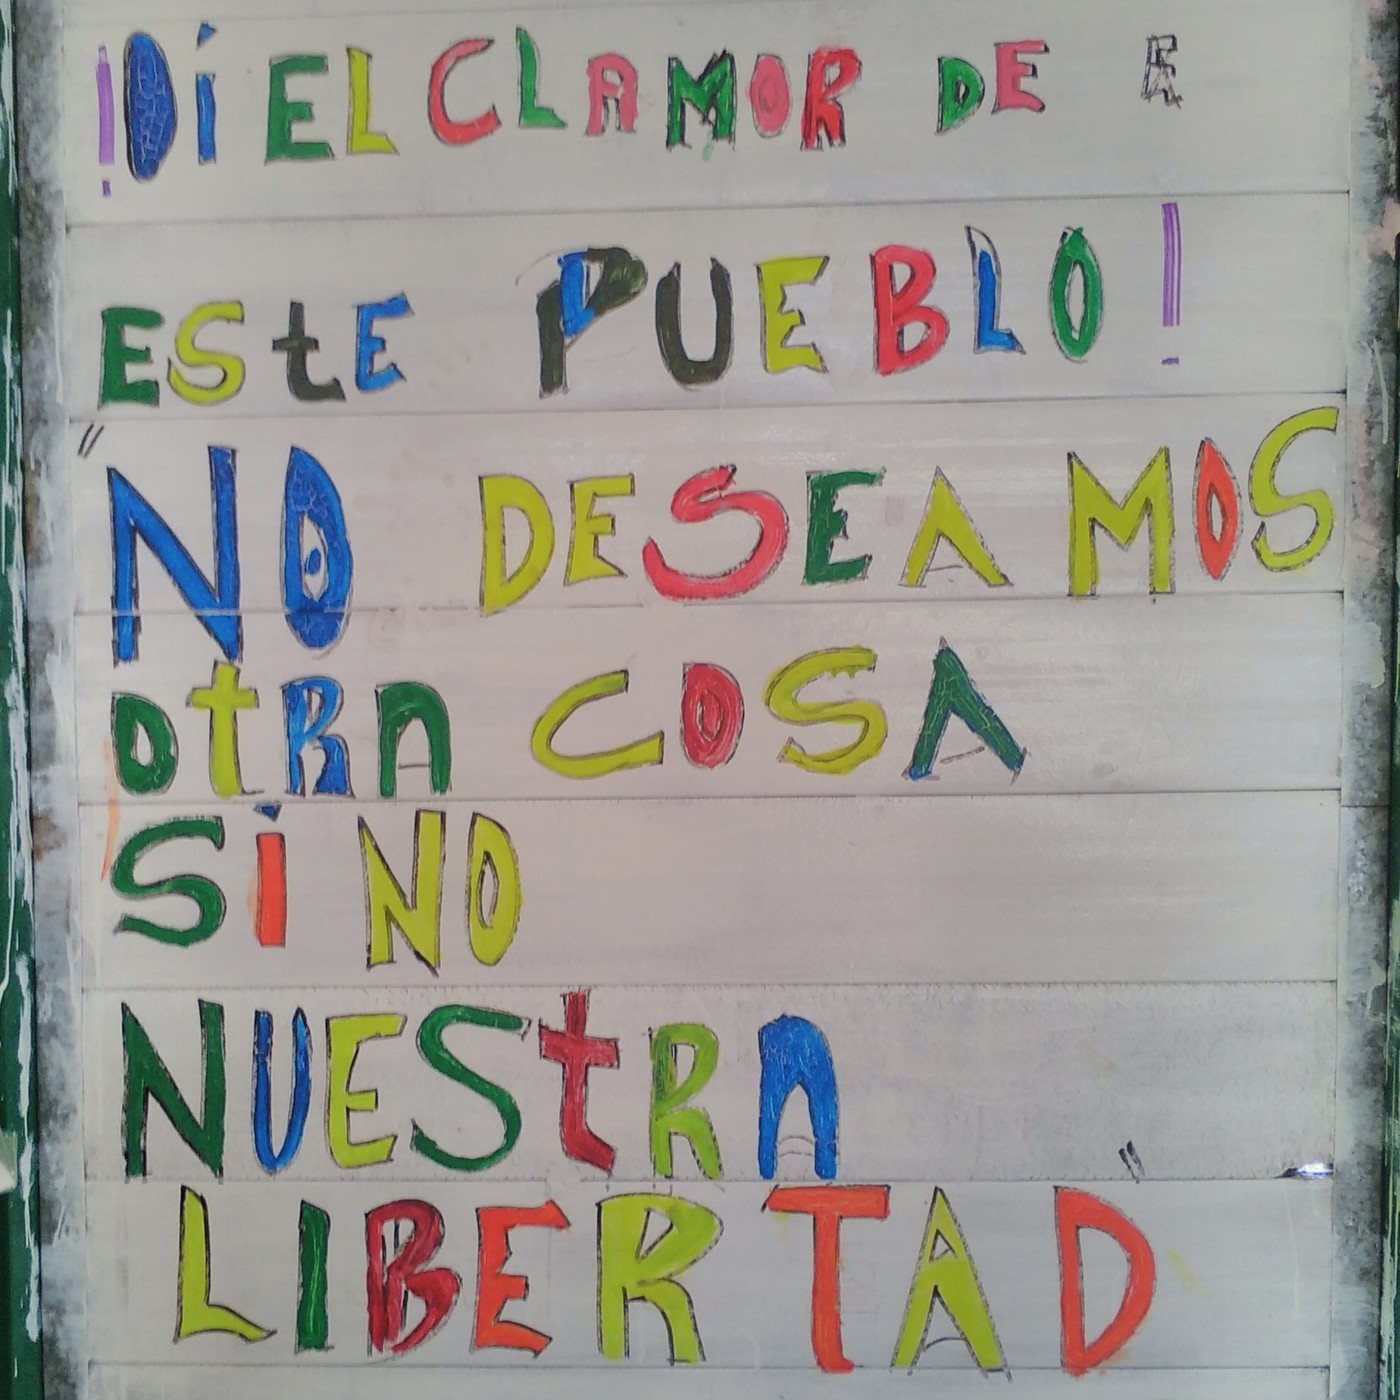 !Dí EL CLAMOR DE E
EStE PUEBLO!
"NO DESEAMOS
OtRA COSA
SíNO
NUEStRA"
LIBERTAD